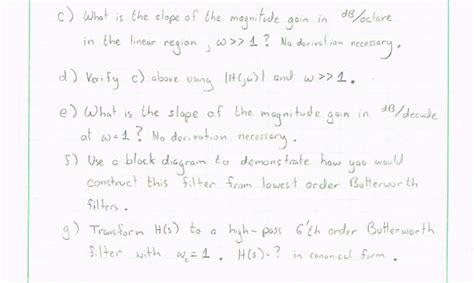 c) What is the slope of the magnitude gain in dB/octave
in the linear region, ω>>1? No derivation necessary.
d) Verify c) above using |H(jω)| and ω>>1.
e) What is the slope of the magnitude gain in dB/decade
at ω=1? No derivation necessary.
f) Use a block diagram to demonstrate how you would
construct this filter from lowest order Butterworth
filters.
g) Transform H(s) to a high-pass 6'th order Butterworth
filter with ω_c=1. H(s)=? in canonical form.